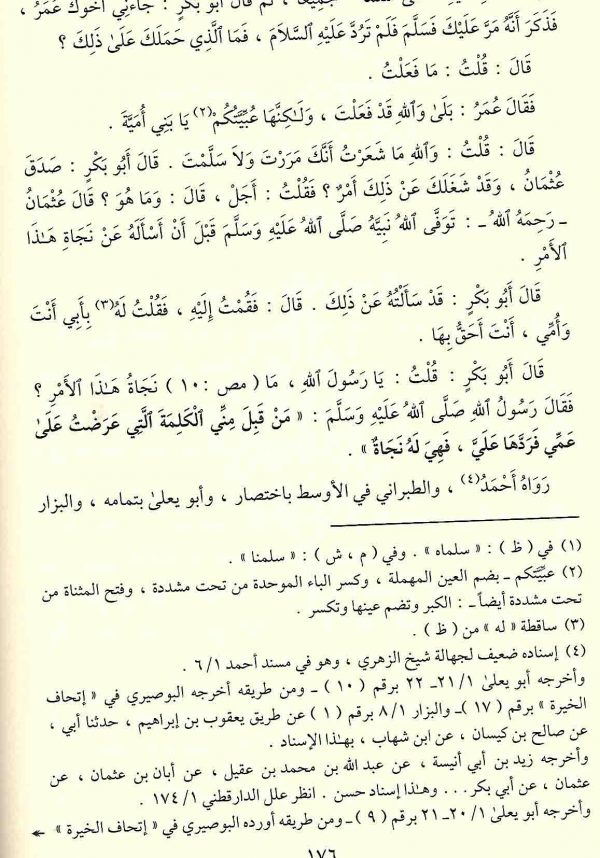 جَمِيعاً ، ثُمَّ قَالَ أَبُو بَكْرٍ : جَاءَنِي أَخُوكَ عُمَرُ ،
فَذَكَرَ أَنَّهُ مَرَّ عَلَيْكَ فَسَلَّمَ فَلَمْ تَرُدَّ عَلَيْهِ ٱلسَّلاَمَ ، فَمَا ٱلَّذِي حَمَلَكَ عَلَىٰ ذَلِكَ ؟
قَالَ : قُلْتُ : مَا فَعَلْتُ .
فَقَالَ عُمَرُ : بَلَىٰ وَٱللهِ قَدْ فَعَلْتَ ، وَلَـٰكِنَّهَا عُبِّيَّتُكُمْ(٢) يَا بَنِي أُمَيَّةَ .
قَالَ : قُلْتُ : وَٱللهِ مَا شَعَرْتُ أَنَّكَ مَرَرْتَ وَلاَ سَلَّمْتَ . قَالَ أَبُو بَكْرٍ : صَدَقَ
عُثْمَانُ ، وَقَدْ شَغَلَكَ عَنْ ذَلِكَ أَمْرٌ ؟ فَقُلْتُ : أَجَلْ ، قَالَ : وَمَا هُوَ ؟ قَالَ عُثْمَانُ
ـ رَحِمَهُ ٱللهُ ـ : تَوَفَّى ٱللهُ نَبِيَّهُ صَلَّى ٱللهُ عَلَيْهِ وَسَلَّمَ قَبْلَ أَنْ أَسْأَلَهُ عَنْ نَجَاةِ هَـٰذَا
ٱلأَمْرِ .
قَالَ أَبُو بَكْرٍ : قَدْ سَأَلْتُهُ عَنْ ذَلِكَ . قَالَ : فَقُمْتُ إِلَيْهِ ، فَقُلْتُ لَهُ(٣) بِأَبِي أَنْتَ
وَأُمِّي ، أَنْتَ أَحَقُّ بِهَا .
قَالَ أَبُو بَكْرٍ : قُلْتُ : يَا رَسُولَ ٱللهِ ، مَا ( مص : ١٠ ) نَجَاةُ هَـٰذَا ٱلأَمْرِ ؟
فَقَالَ رَسُولُ ٱللهِ صَلَّى ٱللهُ عَلَيْهِ وَسَلَّمَ : « مَنْ قَبِلَ مِنِّي ٱلْكَلِمَةَ ٱلَّتِي عَرَضْتُ عَلَىٰ
عَمِّي فَرَدَّهَا عَلَيَّ ، فَهِيَ لَهُ نَجَاةٌ » .
رَوَاهُ أَحْمَدُ(٤) ، والطبراني في الأوسط باختصار ، وأبو يعلىٰ بتمامه ، والبزار
(١) في ( ظ ) : « سلماه » . وفي ( م ، ش ) : « سلمنا » .
(٢) عبيَّتكم ـ بضم العين المهملة ، وكسر الباء الموحدة من تحت مشددة ، وفتح المثناة من
تحت مشددة أيضاً ـ : الكبر وتضم عينها وتكسر .
(٣) ساقطة « له » من ( ظ ) .
(٤) إسناده ضعيف لجهالة شيخ الزهري ، وهو في مسند أحمد ٦/١ .
وأخرجه أبو يعلىٰ ٢١/١ـ ٢٢ برقم ( ١٠ ) ـ ومن طريقه أخرجه البوصيري في « إتحاف
الخيرة » برقم ( ١٧ ) ـ والبزار ٨/١ برقم ( ١ ) عن طريق يعقوب بن إبراهيم ، حدثنا أبي ،
عن صالح بن كيسان ، عن ابن شهاب ، بهـٰذا الإسناد .
وأخرجه زيد بن أبي أنيسة ، عن عبد الله بن محمد بن عقيل ، عن أبان بن عثمان ، عن
عثمان ، عن أبي بكر . . . وهـٰذا إسناد حسن . انظر علل الدارقطني ١٧٤/١ .
وأخرجه أبو يعلىٰ ٢٠/١ـ ٢١ برقم ( ٩ ) ـ ومن طريقه أورده البوصيري في « إتحاف الخيرة »
١٧٦